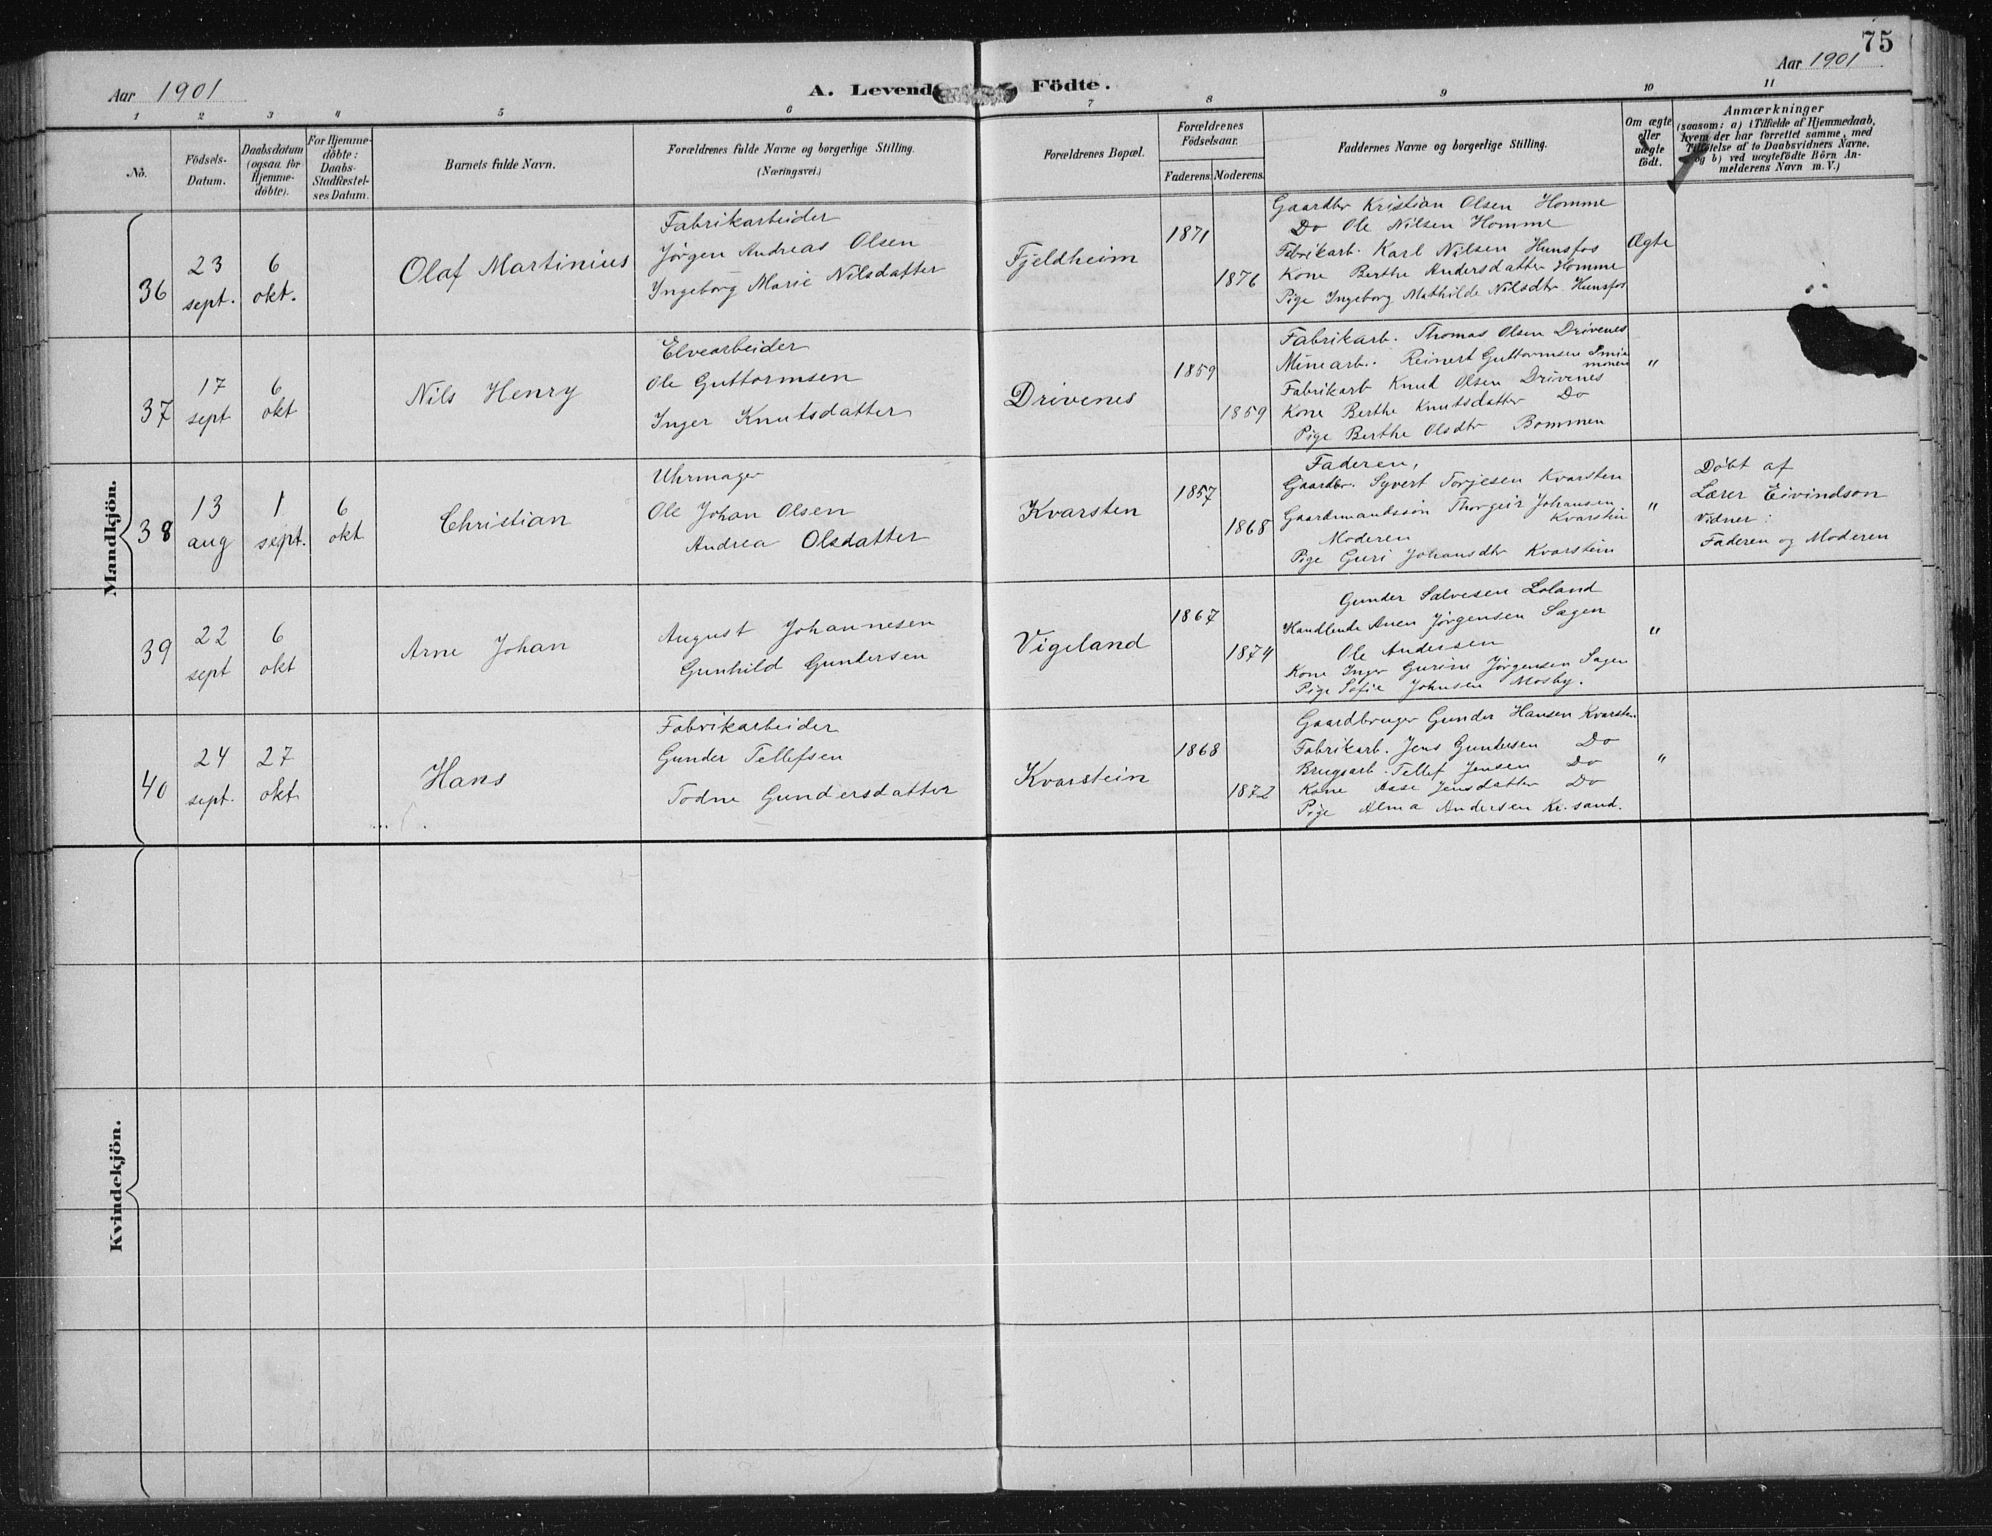 75
Aar 1901
A. Levende Födte.
Aar 1901
1 2 3 4 5 6 7 8 9 10 11
No.
Födsels-Datum.
Daabsdatum (ogsaa for Hjemme-döbte).
For Hjemme-döbte: Daabs-Stadfæstel-ses Datum.
Barnets fulde Navn.
Forældrenes fulde Navne og borgerlige Stilling.
(Næringsvei.)
Forældrenes Bopæl.
Forældrenes Födselsaar.
Faderens. Moderens.
Faddernes Navne og borgerlige Stilling.
Om ægte eller uægte født.
Anmærkninger
(saasom: a) i Tilfælde af Hjemmedaab,
hvem der har forrettet samme, med
Tilføielse af to Daabsvidners Navne.
og b) ved uægtefödte Börn An-
melderens Navn m. V.)
Mandkjön.
36
23 sept.
6 okt.
Olaf Martinius
Fabrikarbeider
Jørgen Andreas Olsen
Ingeborg Marie Nilsdatter
Fjeldheim
1871
1876
Gaardbr Kristian Olsen Homme
Do Ole Nilsen Homme
Fabrikarb. Karl Nilsen Hunsfos
Kone Berthe Andersdatter Homme
Pige Ingeborg Mathilde Nilsdtr Hunsfos
Ægte
37
17 sept
6 okt
Nils Henry
Elvearbeider
Ole Guttormsen
Inger Knutsdatter
Drivenes
1859
1859
Fabrikarb. Thomas Olsen Drivenes
Minearb. Reinert Guttormsen
Fabrikarb Knud Olsen Drivenes
Kone Berthe Knutsdatter Do
Pige Berthe Olsdtr Bommen
"
38
13 aug
1 sept.
6 okt
Christian
Uhrmager
Ole Johan Olsen
Andrea Olsdatter
Kvarsten
1857
1868
Faderen,
Gaardbr. Syvert Torjesen Kvarsten
Gaardmandssøn Thorgeir Johansen
Kvarstein
Moderen
Pige Guri Johansdtr Kvarstein
"
Døbt af
Lærer Eivindson
Vidner:
Faderen og Moderen
39
22 sept
6 okt
Arne Johan
August Johannesen
Gunhild Gundersen
Vigeland
1867
1874
Gunder Salvesen Loland
Handlende Anen Jørgensen Sagen
Ole Andersen
Kone Inger Gurine Jørgensen Sagen
Pige Sofie Johnsen Mosby.
"
40
24 sept.
27 okt
Hans
Fabrikarbeider
Gunder Tellefsen
Todne Gundersdatter
Kvarstein
1868
1872
Gaardbruger Gunder Hansen Kvarsten
Fabrikarb. Jens Gundersen Do
Brugsarb. Tellef Jensen Do
Kone Aase Jensdatter Do
Pige Alma Andersen Kr.sand.
"
Kvindekjön.